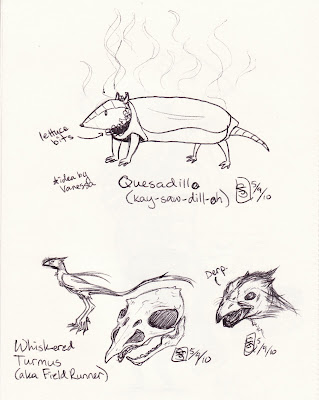 lettuce
bits
*idea by
Vanessa
Quesadillo
(kay-saw-dill-oh)
5/9/10
Derp
Whiskered
Turmus
(aka Field Runner)
5/9/10
5/9/10